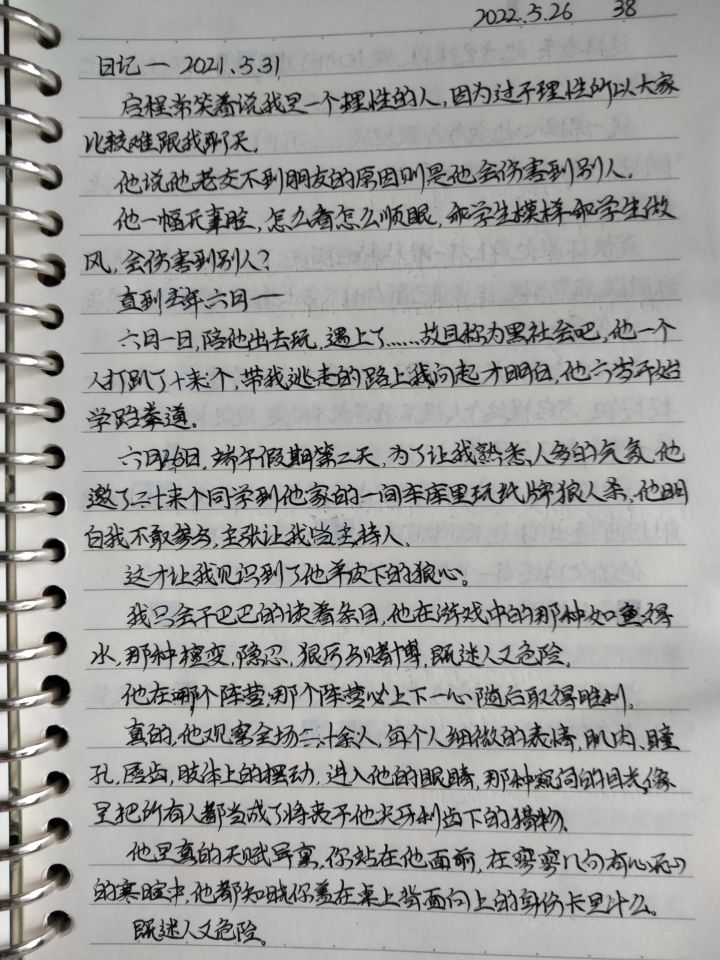 2022.5.26 38
日记一 2021.5.31
启程常笑着说我是一个理性的人,因为过于理性所以大家
比较难跟我聊天。
他说他老交不到朋友的原因则是他会伤害到别人。
他一幅无辜脸,怎么看怎么顺眼,和学生模样和学生做
风,会伤害到别人?
直到去年六日——
六日一日,陪他出去玩,遇上了……故且称为黑社会吧,他一个
人打趴了十来个,带我逃走的路上我问起才明白,他六岁开始
学跆拳道。
六日26日,端午假期第二天,为了让我熟悉人多的气氛,他
邀了二十来个同学到他家的一间车库里玩纸牌狼人杀,他明
白我不敢参与,主张让我当主持人。
这才让我见识到了他羊皮下的狼心。
我只会干巴巴的读着条目,他在游戏中的那种如鱼得
水,那种擅变,隐忍,狠厉与赌博,既迷人又危险。
他在哪个阵营,那个阵营必上下一心随后取得胜利。
真的,他观察全场二十余人,每个人细微的表情,肌肉、瞳
孔,唇齿,肢体上的摆动,进入他的眼睛,那种窥伺的目光,像
是把所有人都当成了将丧于他尖牙利齿下的猎物。
他是真的天赋异禀,你站在他面前,在寥寥几句有心无心
的寒暄中,他都知晓你盖在桌上背面向上的身份卡是什么。
既迷人又危险。